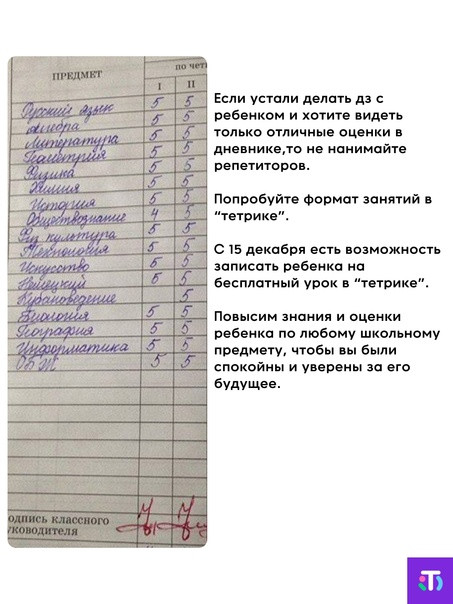 ПРЕДМЕТ
по чет
I II
Русский язык 5 5
Алгебра 5 5
Литература 5 5
Геометрия 5 5
Физика 5 5
Химия 5 5
История 5 5
Обществознание 4 5
Физ культура 5 5
Технология 5 5
Искусство 5 5
Немецкий 5 5
Кубановедение 5
Биология 5 5
География 5 5
Информатика 5 5
ОБЖ 5 5
одпись классного
уководителя
Если устали делать дз с
ребенком и хотите видеть
только отличные оценки в
дневнике,то не нанимайте
репетиторов.
Попробуйте формат занятий в
“тетрике”.
С 15 декабря есть возможность
записать ребенка на
бесплатный урок в “тетрике”.
Повысим знания и оценки
ребенка по любому школьному
предмету, чтобы вы были
спокойны и уверены за его
будущее.